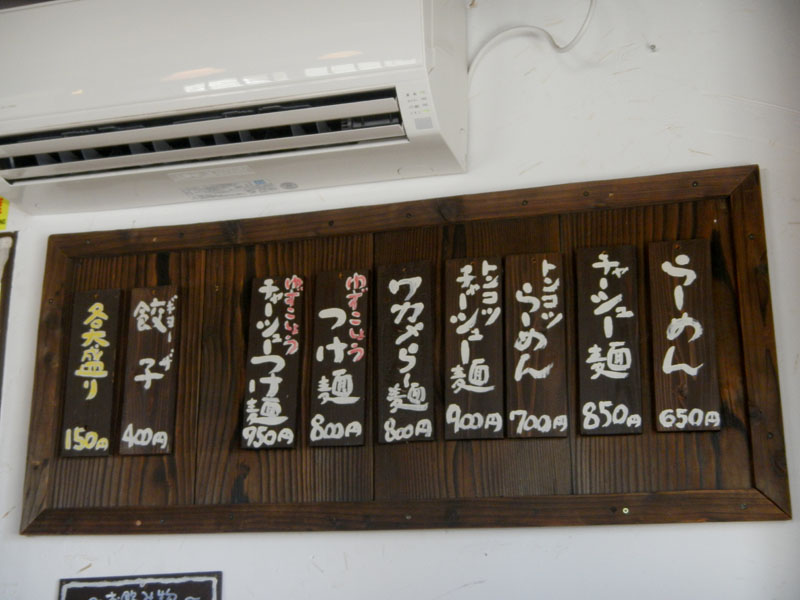 らーめん
650円
チャーシュー麺
850円
トンコツ
らーめん
700円
トンコツ
チャーシュー麺
900円
ワカメらー麺
800円
ゆずこしょう
つけ麺
800円
ゆずこしょう
チャーシューつけ麺
950円
ギョーザ
餃子
400円
各大盛り
150円
～お飲み物～